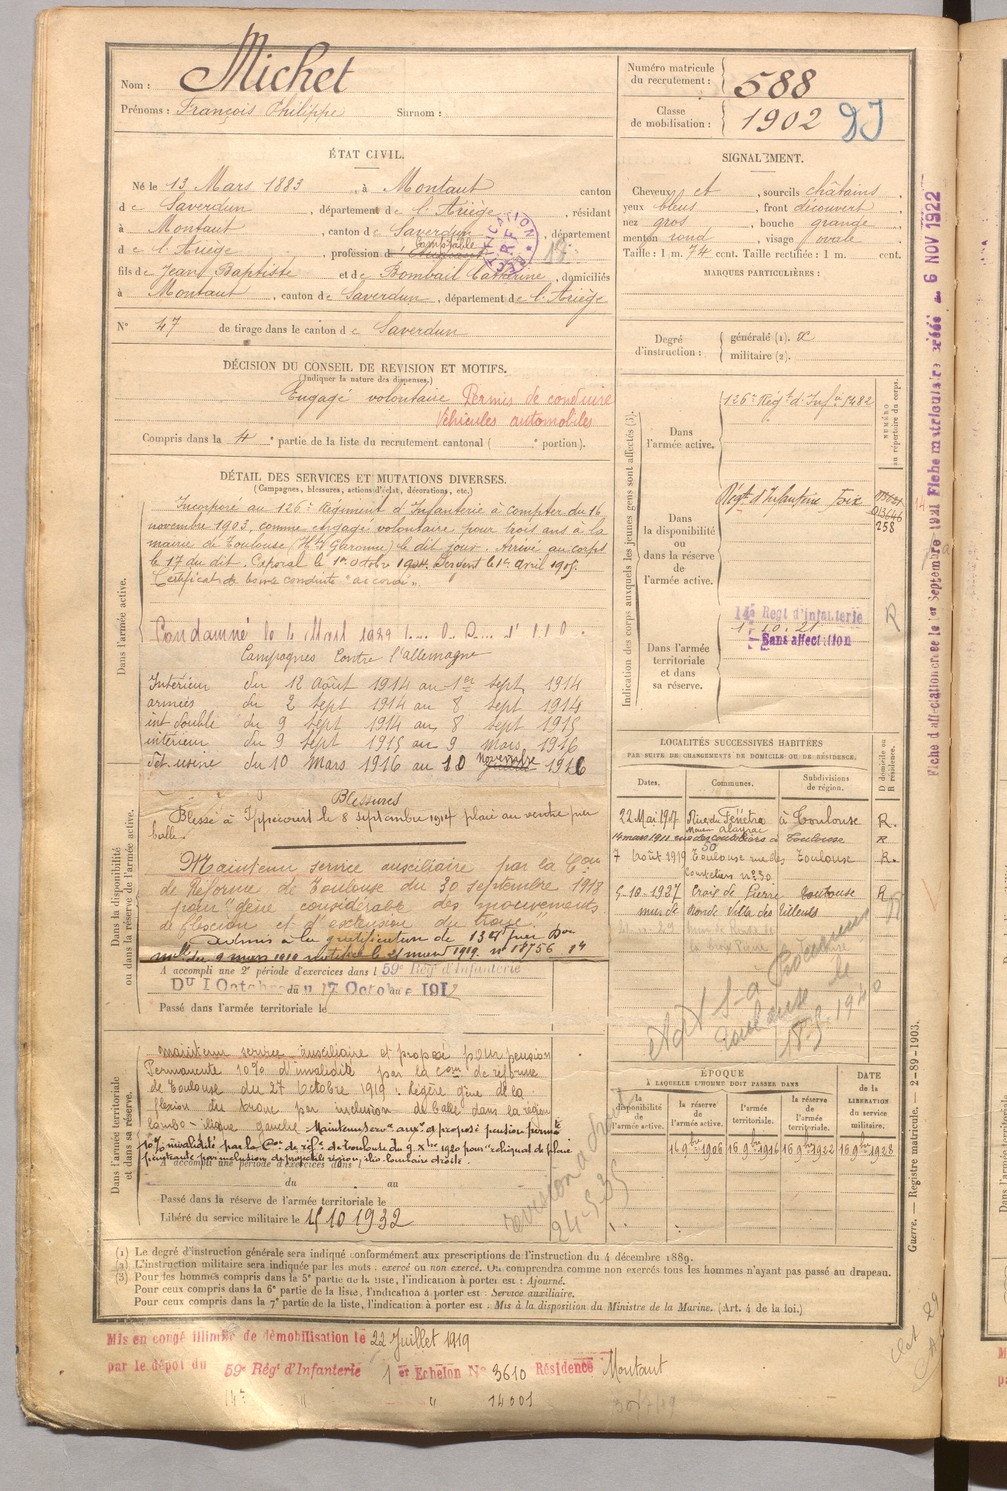 Nom : Michet
Prénoms : François Philippe Surnom :
Numéro matricule du recrutement : 588
Classe de mobilisation : 1902
ÉTAT CIVIL.
Né le 13 Mars 1883, à Montaut canton
de Saverdun, département de l'Ariège, résidant
à Montaut, canton de Saverdun, département
de l'Ariège, profession d Comptable
fils de Jean Baptiste et de Bombail Catherine, domiciliés
à Montaut, canton de Saverdun, département de l'Ariège
N° 47 de tirage dans le canton de Saverdun
SIGNALEMENT.
Cheveux et, sourcils châtains,
yeux bleus, front découvert
nez gros, bouche grande,
menton rond, visage ovale
Taille : 1 m. 74 cent. Taille rectifiée : 1 m. cent.
MARQUES PARTICULIÈRES :
Degré d'instruction : générale (1).
militaire (2).
DÉCISION DU CONSEIL DE REVISION ET MOTIFS.
(Indiquer la nature des dispenses.)
Engagé volontaire Permis de conduire
Véhicules automobiles
Compris dans la 4e partie de la liste du recrutement cantonal ( e portion).
DÉTAIL DES SERVICES ET MUTATIONS DIVERSES.
(Campagnes, blessures, actions d'éclat, décorations, etc.)
Dans l'armée active.
Incorporé au 126e Régiment d'Infanterie à compter du 16
novembre 1903, comme engagé volontaire pour trois ans à la
mairie de Toulouse (Hte Garonne) le dit jour. Arrivé au corps
le 17 du dit. Caporal le 1er octobre 1904. Sergent le 1er avril 1905.
Certificat de bonne conduite "accordé".
Condamné le 4 Mars 1929
Campagnes contre l'allemagne
Intérieur du 12 Août 1914 au 1er sept 1914
armées du 2 sept 1914 au 8 sept 1914
int double du 9 sept 1914 au 8 sept 1915
intérieur du 9 sept 1915 au 9 mars 1916
Det. usine du 10 Mars 1916 au 10 novembre 1916
Dans la disponibilité ou dans la réserve de l'armée active.
Blessures
Blessé à Ippécourt le 8 septembre 1914 plaie au ventre par
balle.
Maintenu service auxiliaire par la Con
de Réforme de Toulouse du 30 septembre 1918
pour "gêne considérable des mouvements
de flexion et d'extension du tronc".
Admis à la gratification de
mlle du 9 mars 1919 notifiée le 21 mars 1919. n° 18756
A accompli une 2e période d'exercices dans l 59e Régt d'Infanterie
Du 1 Octobre au 17 Octobre 1912
Passé dans l'armée territoriale le
Dans l'armée territoriale et dans sa réserve.
maintenu service auxiliaire et proposé pour pension
Permanente 10% d'invalidité par la Com de réforme
de Toulouse du 27 Octobre 1919 : légère gêne de la
flexion du tronc par inclusion de balle dans la région
lombo-iliaque gauche Maintenu serv. aux. et proposé pension perma
10% invalidité par la Con de réf. de toulouse du 9 Xbre 1920 pour reliquat de plaie
pénétrante par inclusion de projectile région ilio-lombaire droite.
A accompli une période d'exercices dans l
du au
Passé dans la réserve de l'armée territoriale le
Libéré du service militaire le 15 10 1932
Indication des corps auxquels les jeunes gens sont affectés (3).
Dans l'armée active.
126e Régt d'Infrie 5482
NUMÉRO au répertoire du corps.
Dans la disponibilité ou dans la réserve de l'armée active.
Régt d'Infanterie Foix
258
Dans l'armée territoriale et dans sa réserve.
14e Regt d'Infanterie
1.10.21
Sans affectation
R
LOCALITÉS SUCCESSIVES HABITÉES
PAR SUITE DE CHANGEMENTS DE DOMICILE OU DE RÉSIDENCE.
Dates. Communes. Subdivisions de région. D domicile ou R résidence.
22 Mai 1907 Rue du Fenêtra à Toulouse R.
14 mars 1911 rue des couteliers 50 à Toulouse R
7 Août 1919 Toulouse rue des Toulouse R.
Couteliers n° 30
5-10-1927 Croix de Pierre Toulouse R
Villa des Tilleuls
ÉPOQUE
À LAQUELLE L'HOMME DOIT PASSER DANS
la disponibilité de l'armée active. la réserve de l'armée active. l'armée territoriale. la réserve de l'armée territoriale. DATE de la LIBÉRATION du service militaire.
16 9bre 1906 16 9bre 1916 16 9bre 1922 16 9bre 1928
revision
24-5-35
(1) Le degré d'instruction générale sera indiqué conformément aux prescriptions de l'instruction du 4 décembre 1889.
(2) L'instruction militaire sera indiquée par les mots : exercé ou non exercé. On comprendra comme non exercés tous les hommes n'ayant pas passé au drapeau.
(3) Pour les hommes compris dans la 5e partie de la liste, l'indication à porter est : Ajourné.
Pour ceux compris dans la 6e partie de la liste, l'indication à porter est : Service auxiliaire.
Pour ceux compris dans la 7e partie de la liste, l'indication à porter est : Mis à la disposition du Ministre de la Marine. (Art. 4 de la loi.)
Mis en congé illimité de démobilisation le 22 Juillet 1919
par le dépôt du 59e Régt d'Infanterie 1er Echelon N° 3610 Résidence Montaut
14501
Guerre. — Registre matricule. — 2-89-1903.
Fiche d'affectation créée le 1er Septembre 1921 Fiche matriculaire créée le 6 NOV 1922